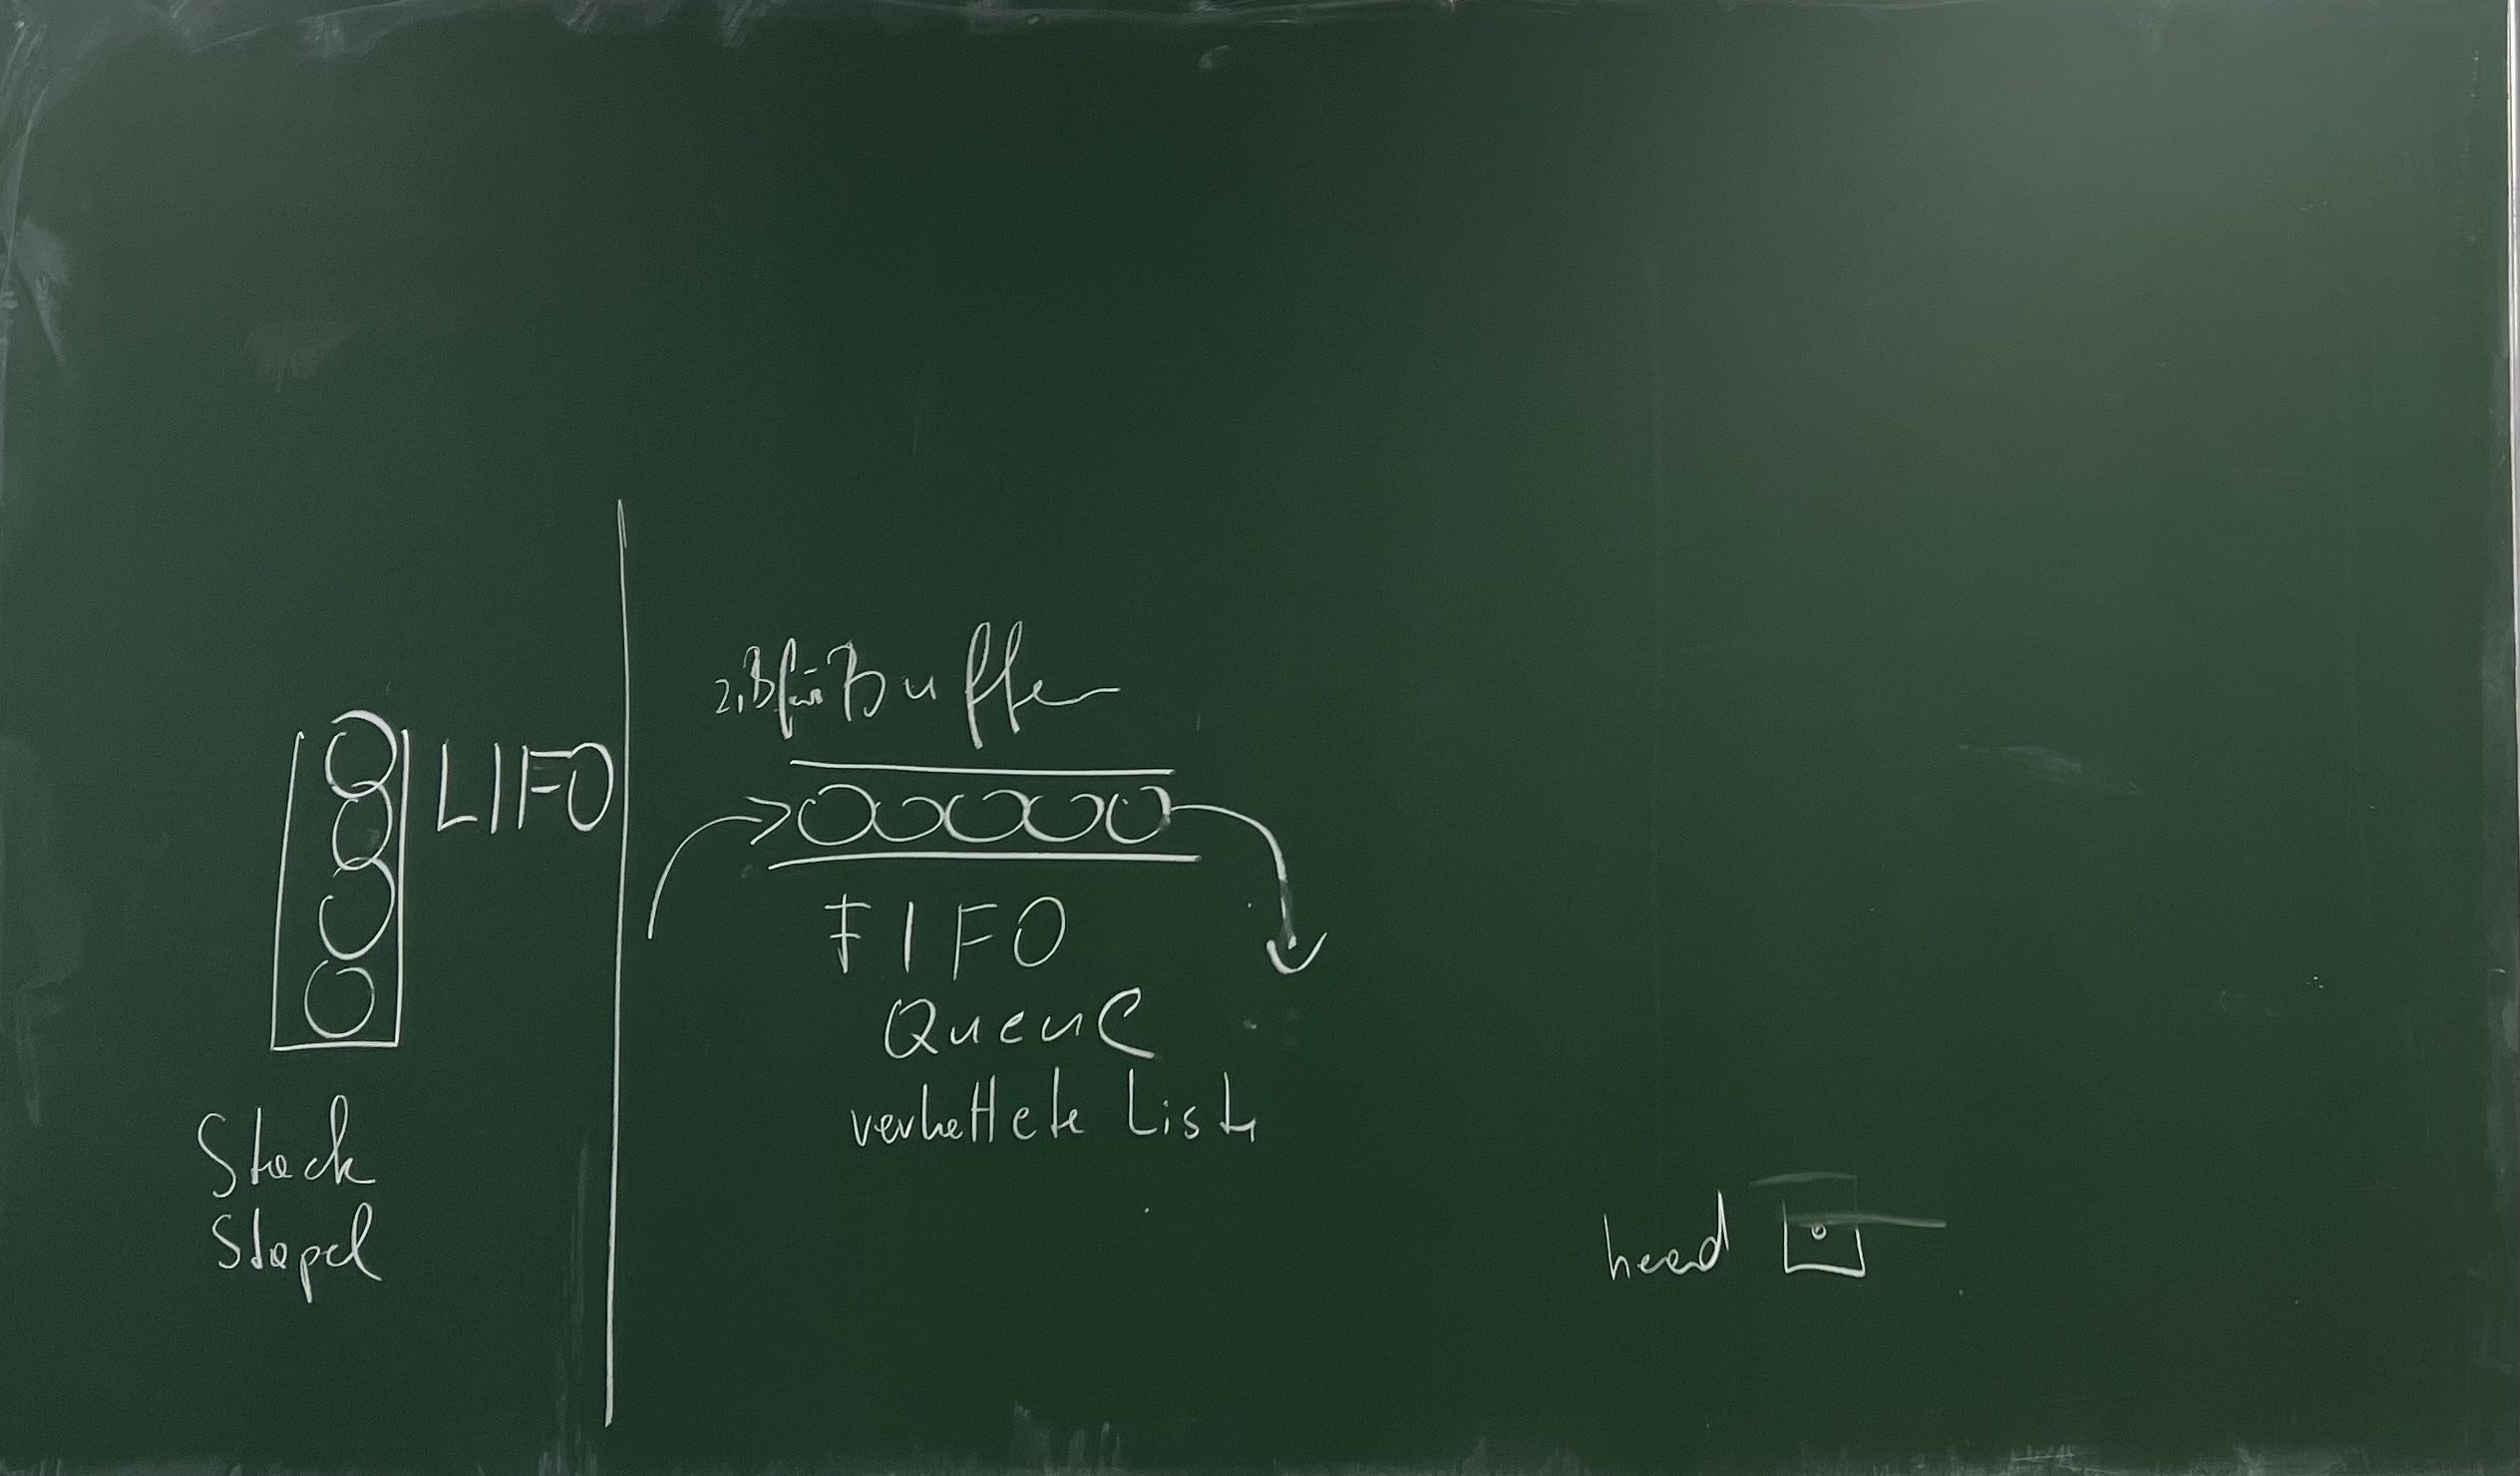 LIFO
Stack
Stapel
z.B für Buffer
FIFO
Queue
verkettete Liste
head